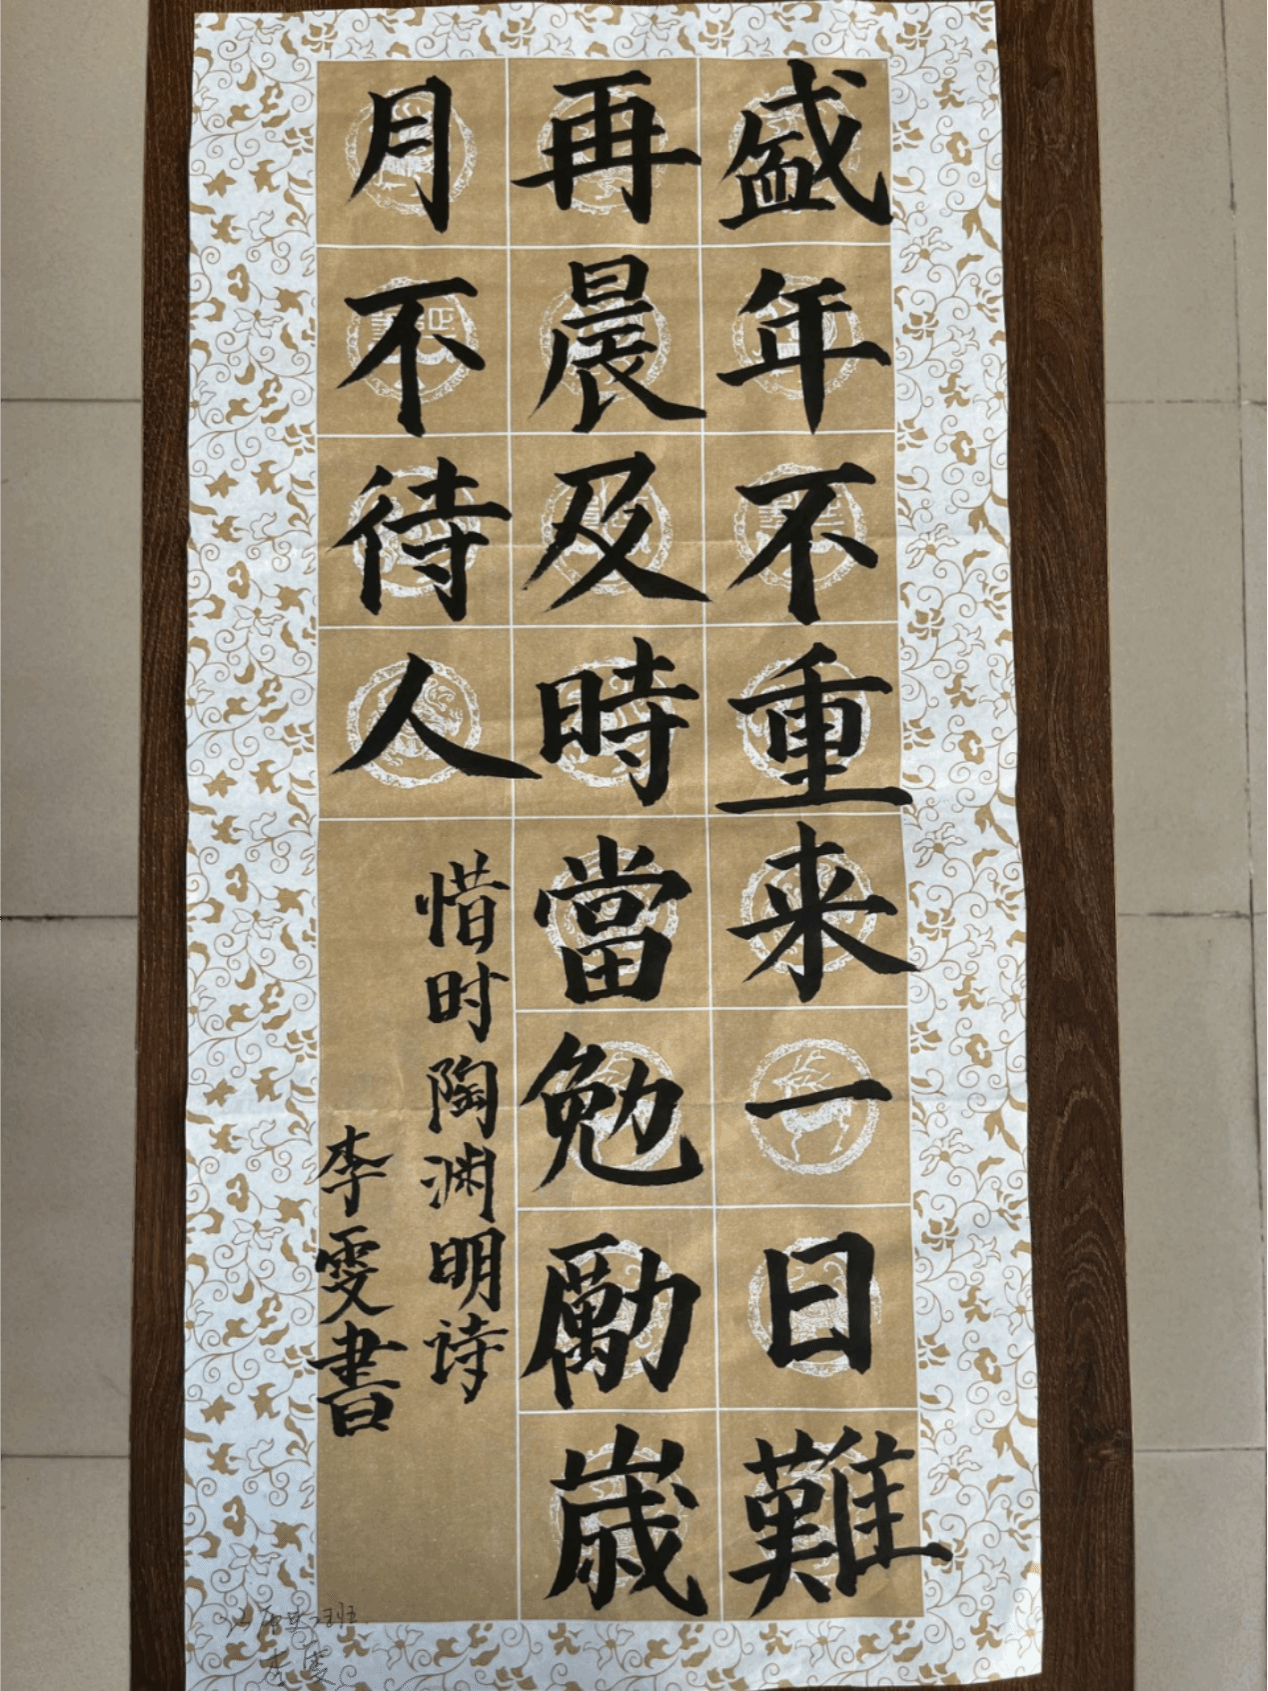 盛年不重来一日難
再晨及時當勉勵歳
月不待人
惜时陶渊明诗
李雯書